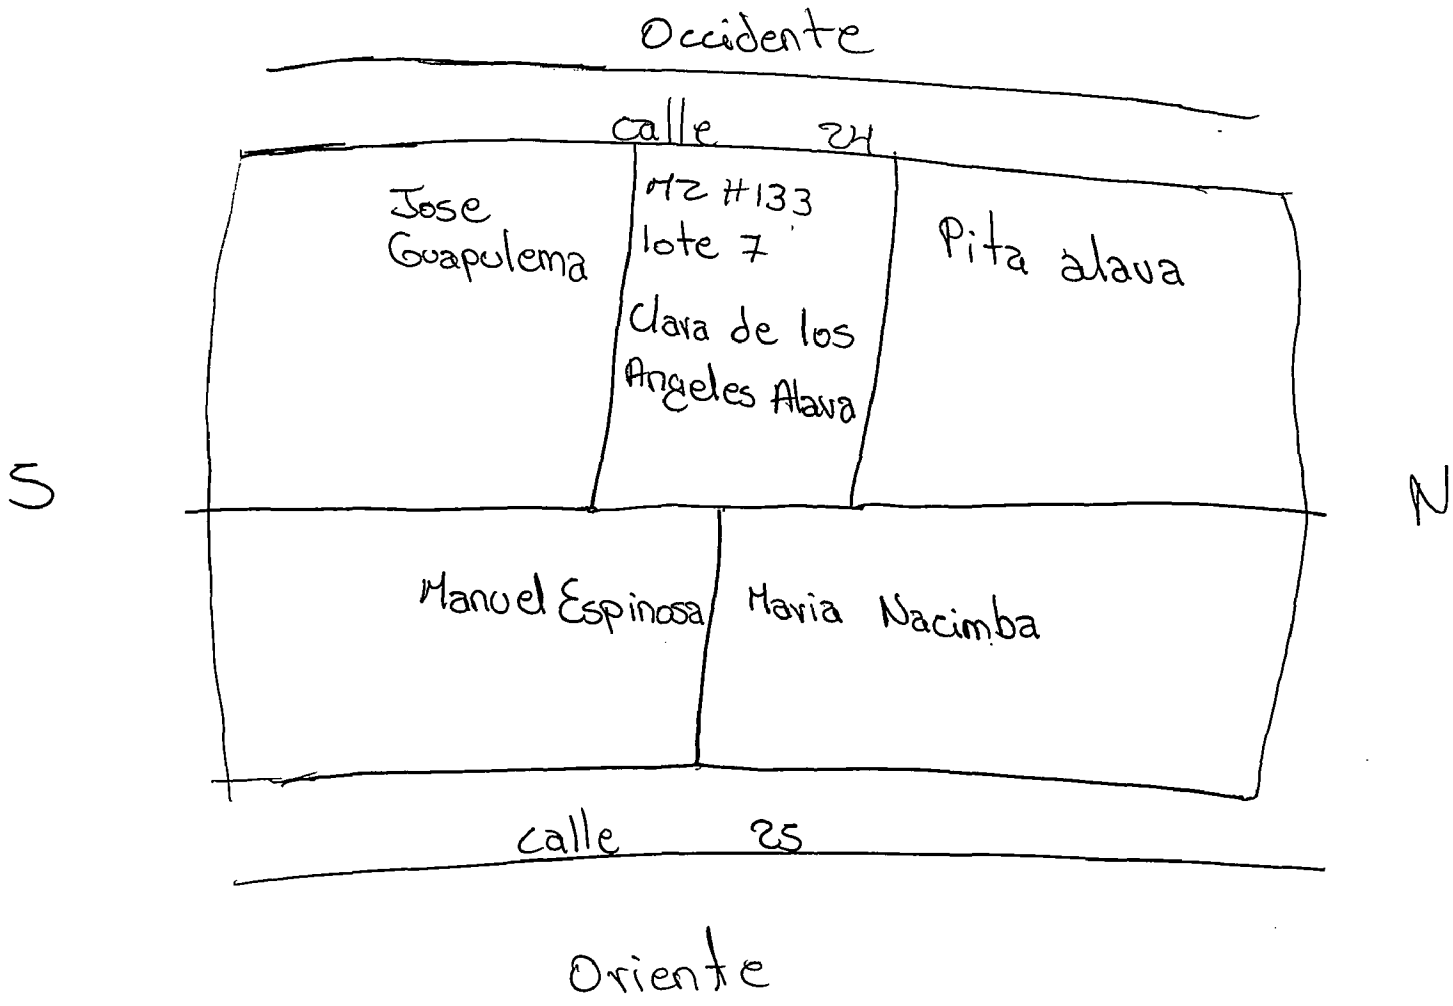 Occidente
calle 24
Jose
Guapulema
MZ #133
lote 7
Clara de los
Angeles Alava
Pita alava
S
N
Manuel Espinosa
Maria Nacimba
calle 25
Oriente